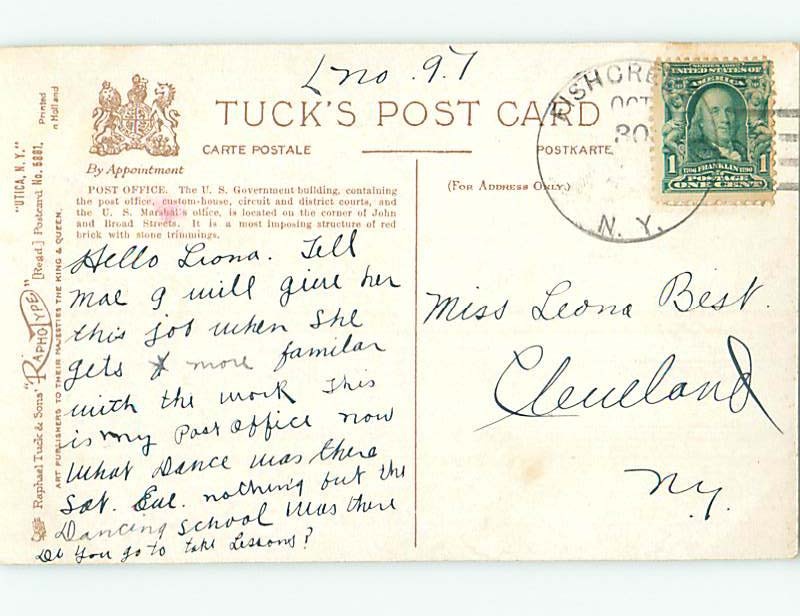 L no. 97
TUCK'S POST CARD
CARTE POSTALE
POSTKARTE
By Appointment
(For Address Only.)
POST OFFICE. The U. S. Government building, containing
the post office, custom-house, circuit and district courts, and
the U. S. Marshal's office, is located on the corner of John
and Broad Streets. It is a most imposing structure of red
brick with stone trimmings.
Hello Leona. Tell
Mae I will give her
this job when she
gets more familar
with the work This
is my Post Office now
What Dance was there
Sat. Eve. nothing but the
Dancing School was there
Do You go to take Lessons?
Miss Leona Best.
Cleveland
N.Y.
FISH CRE
OCT
30
N. Y.
SERIES 1902
UNITED STATES OF
AMERICA
1 1
1706 FRANKLIN 1790
POSTAGE
ONE CENT
"UTICA, N. Y."
Raphael Tuck & Sons' "RAPHOTYPE" [Regd.] Postcard No. 5881.
Printed
in Holland
ART PUBLISHERS TO THEIR MAJESTIES THE KING & QUEEN.